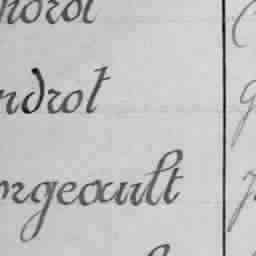 ndrot
ndrot
orgeault